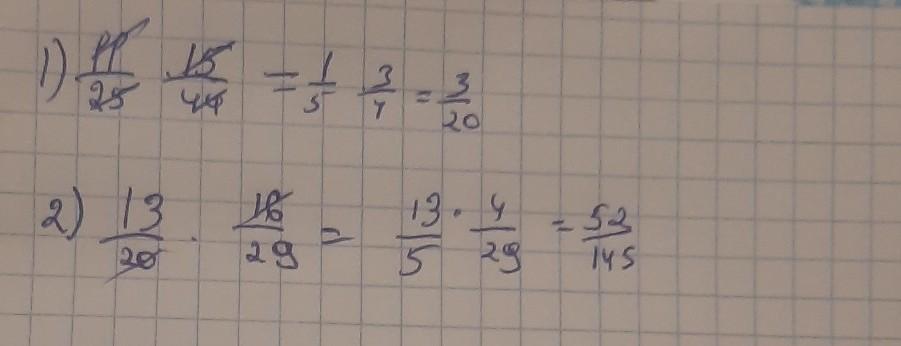 1) 11/25 15/44 = 1/5 3/4 = 3/20
2) 13/20 · 16/29 = 13/5 · 4/29 = 52/145